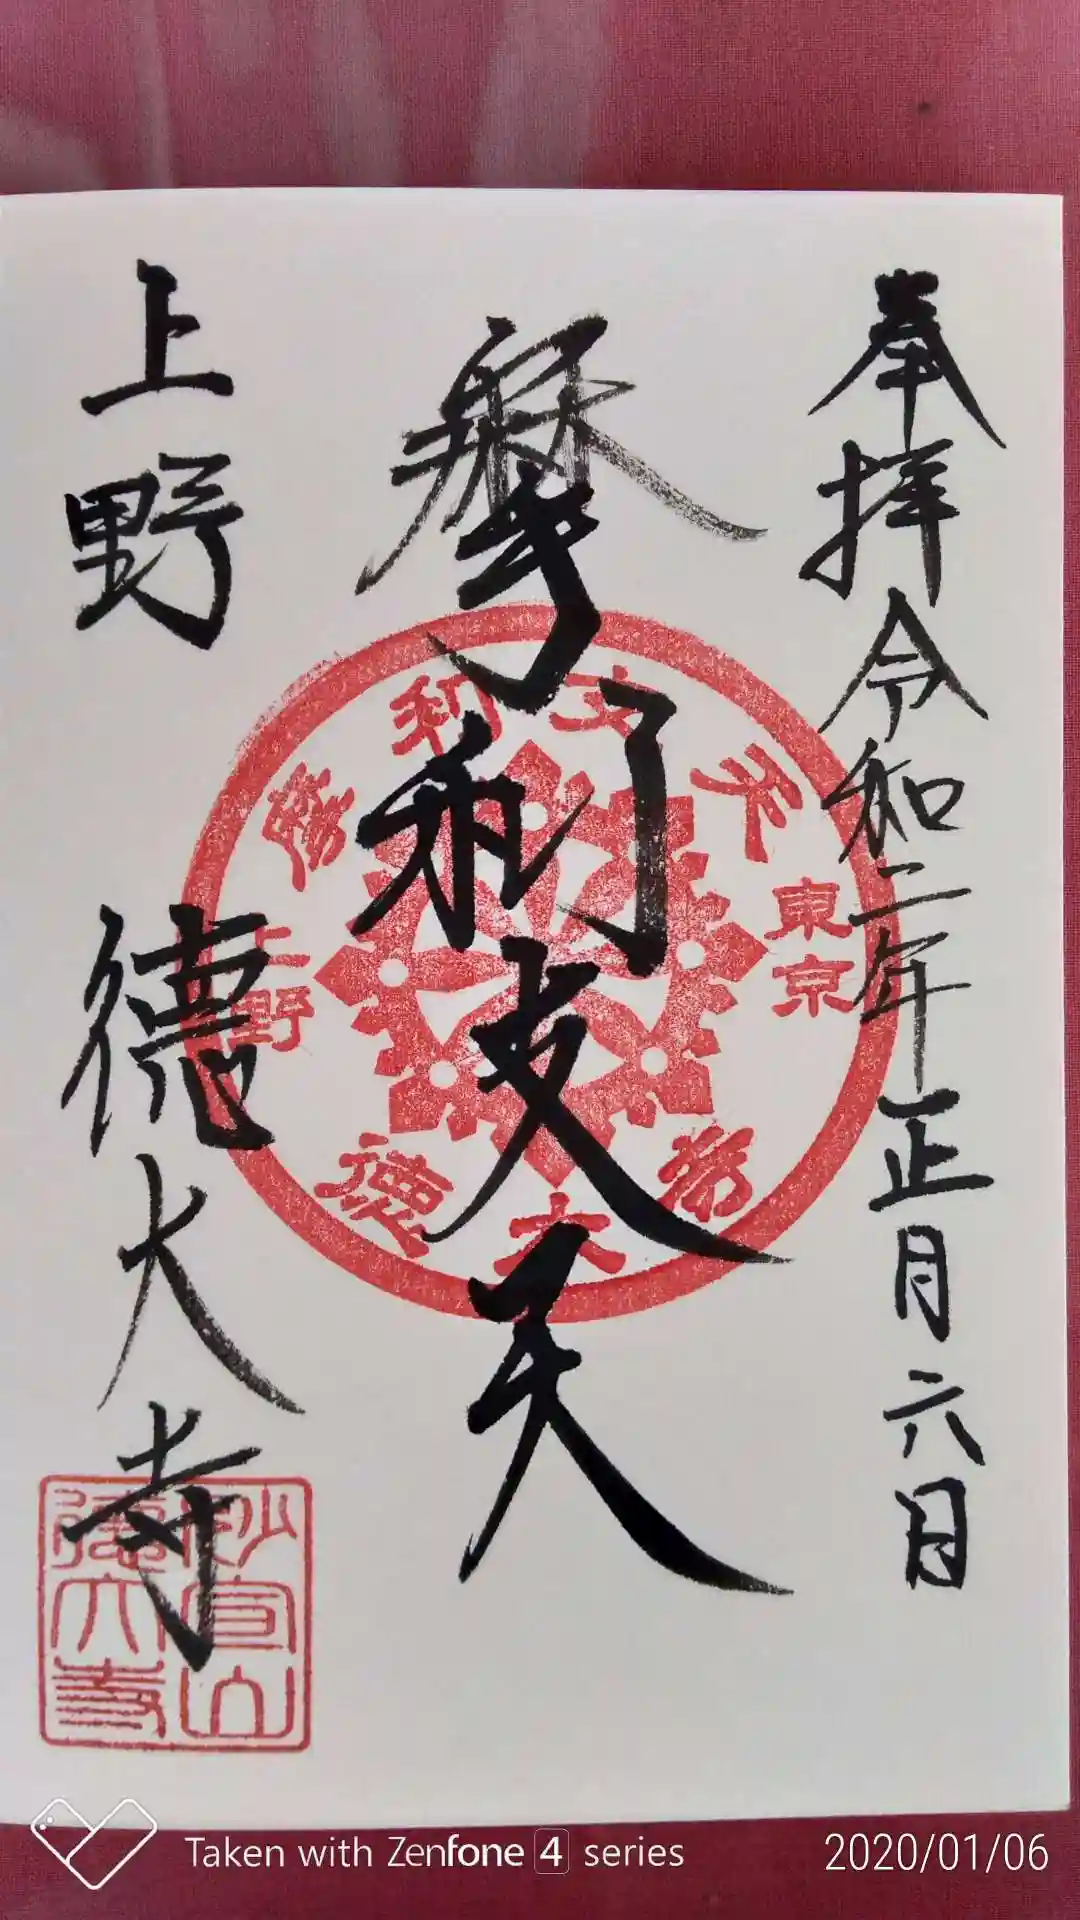 奉拝 令和二年正月六日
摩利支天
上野 徳大寺
摩利支天
東京
上野
徳大寺
妙宣山
徳大寺
Taken with Zenfone 4 series
2020/01/06